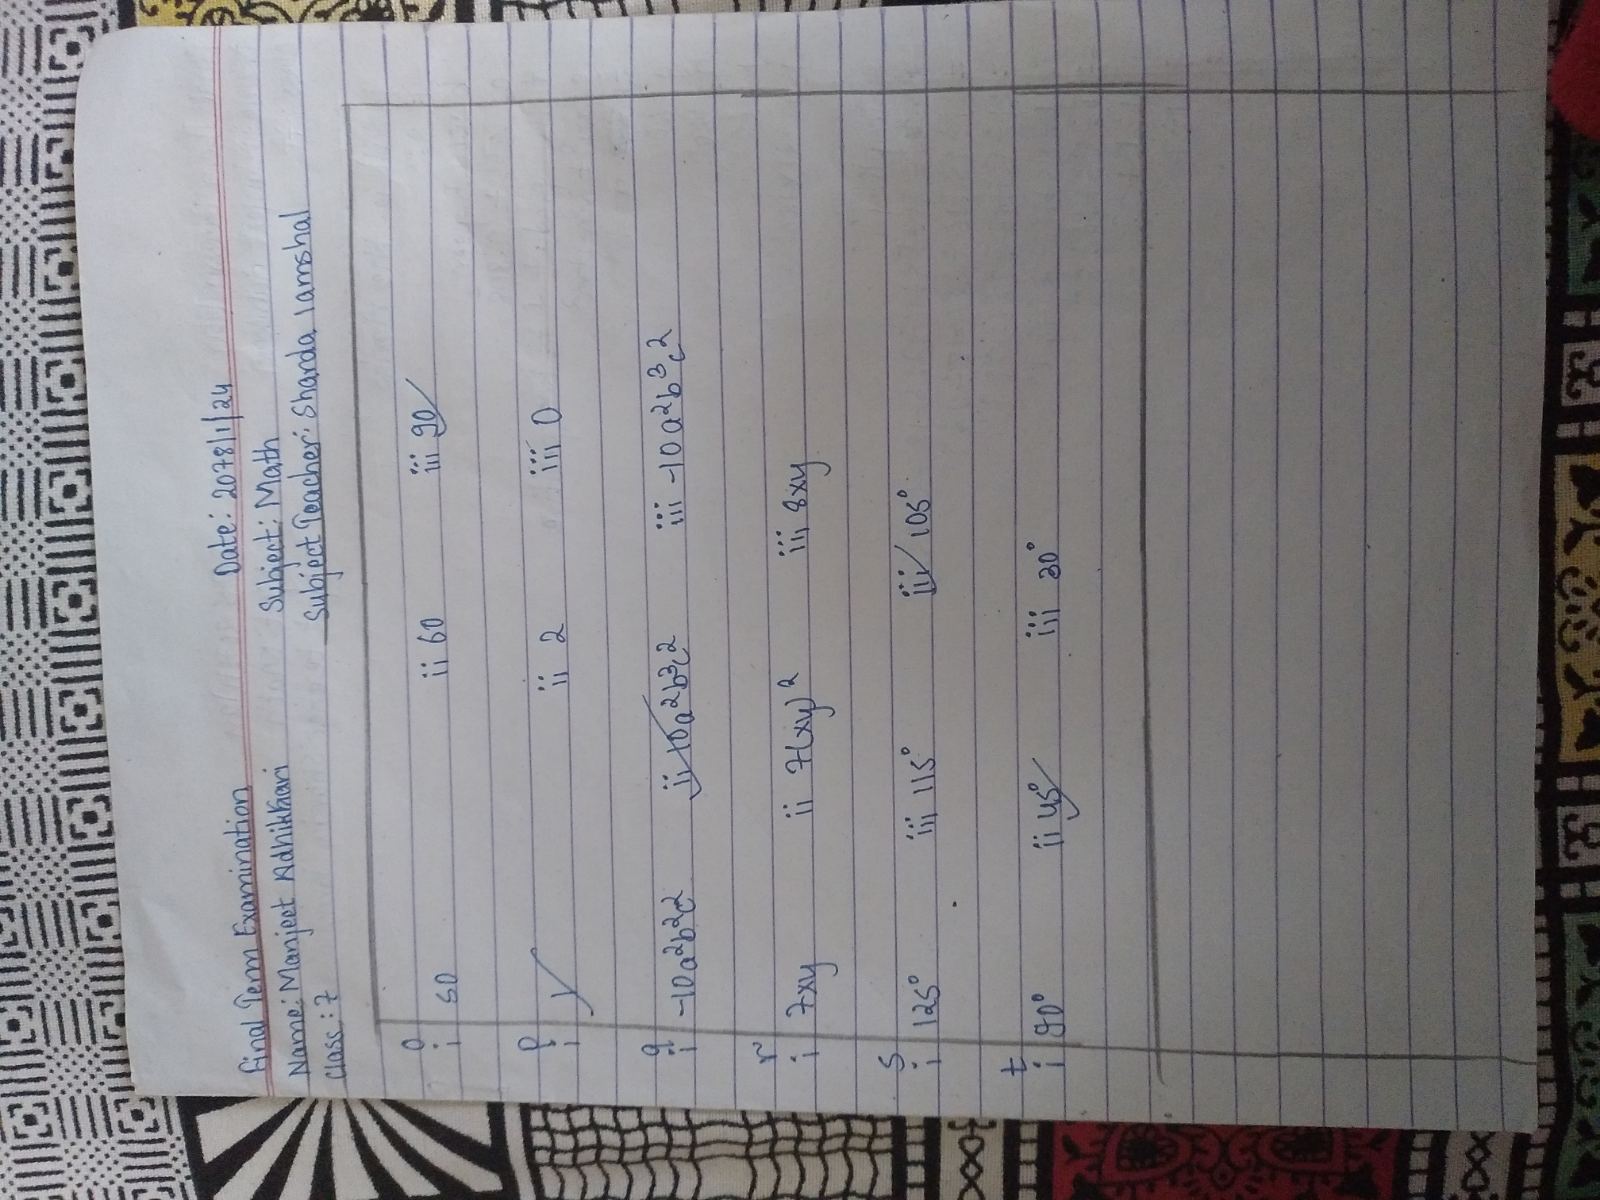 Final Term Examination Date: 2078/1/24
Name: Manjeet Adhikari Subject: Math
Class: 7 Subject Teacher: Sharda lamshal
o
i 50 ii 60 iii 90
p
i 1 ii 2 iii 0
q
i -10a²b²c² ii 10a²b³c² iii -10a²b³c²
r
i 7xy ii 7(xy)² iii 8xy
s
i 125° iii 115° iii 105°
t
i 90° ii 45° iii 30°